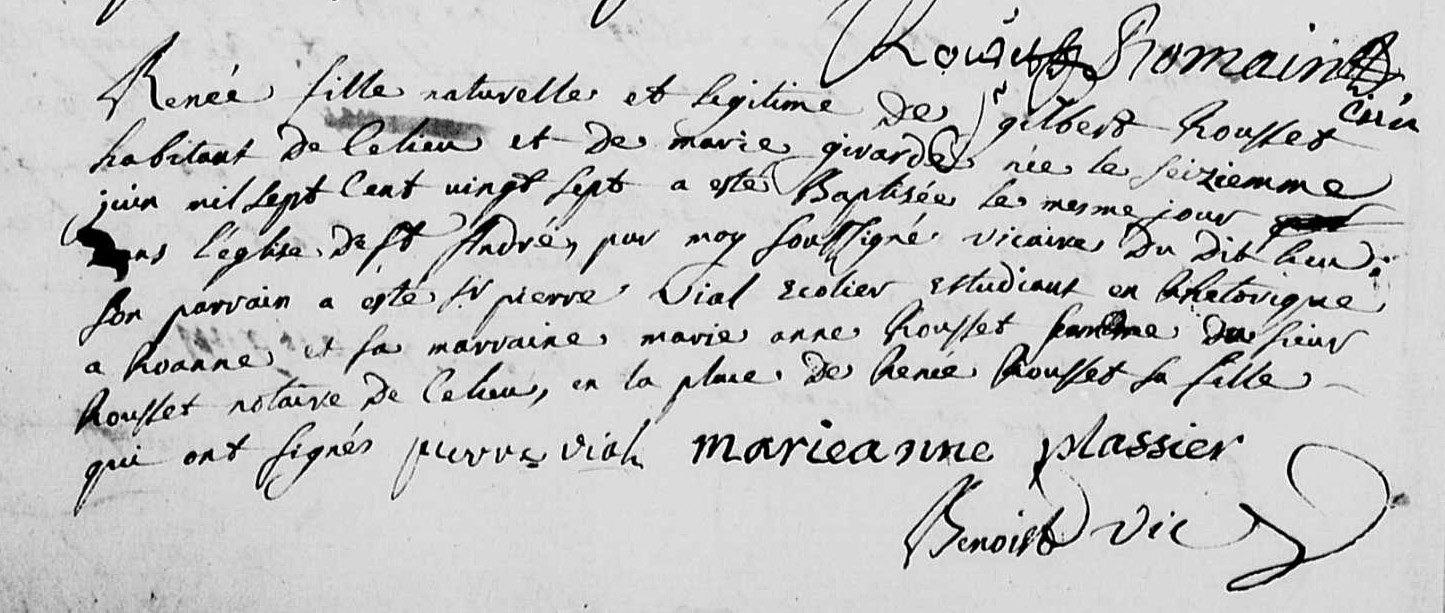 Romain
curé
Renée fille naturelle et legitime de Sr gilbert Rousset
habitant de Celieu et de marie girarde née le seiziemme
juin mil sept Cent vingt sept a esté Baptisée le mesme jour
dans l'eglise de St André, par moy soussigné vicaire du dit lieu
son parrain a este Sr pierre vial Ecolier Estudiant en Rhetorique
a Roanne et sa marraine marie anne Rousset femme du sieur
Rousset notaire de Celieu, en la place de Renée Rousset sa fille
qui ont signés pierre vial marieanne plassier
Benoist vic